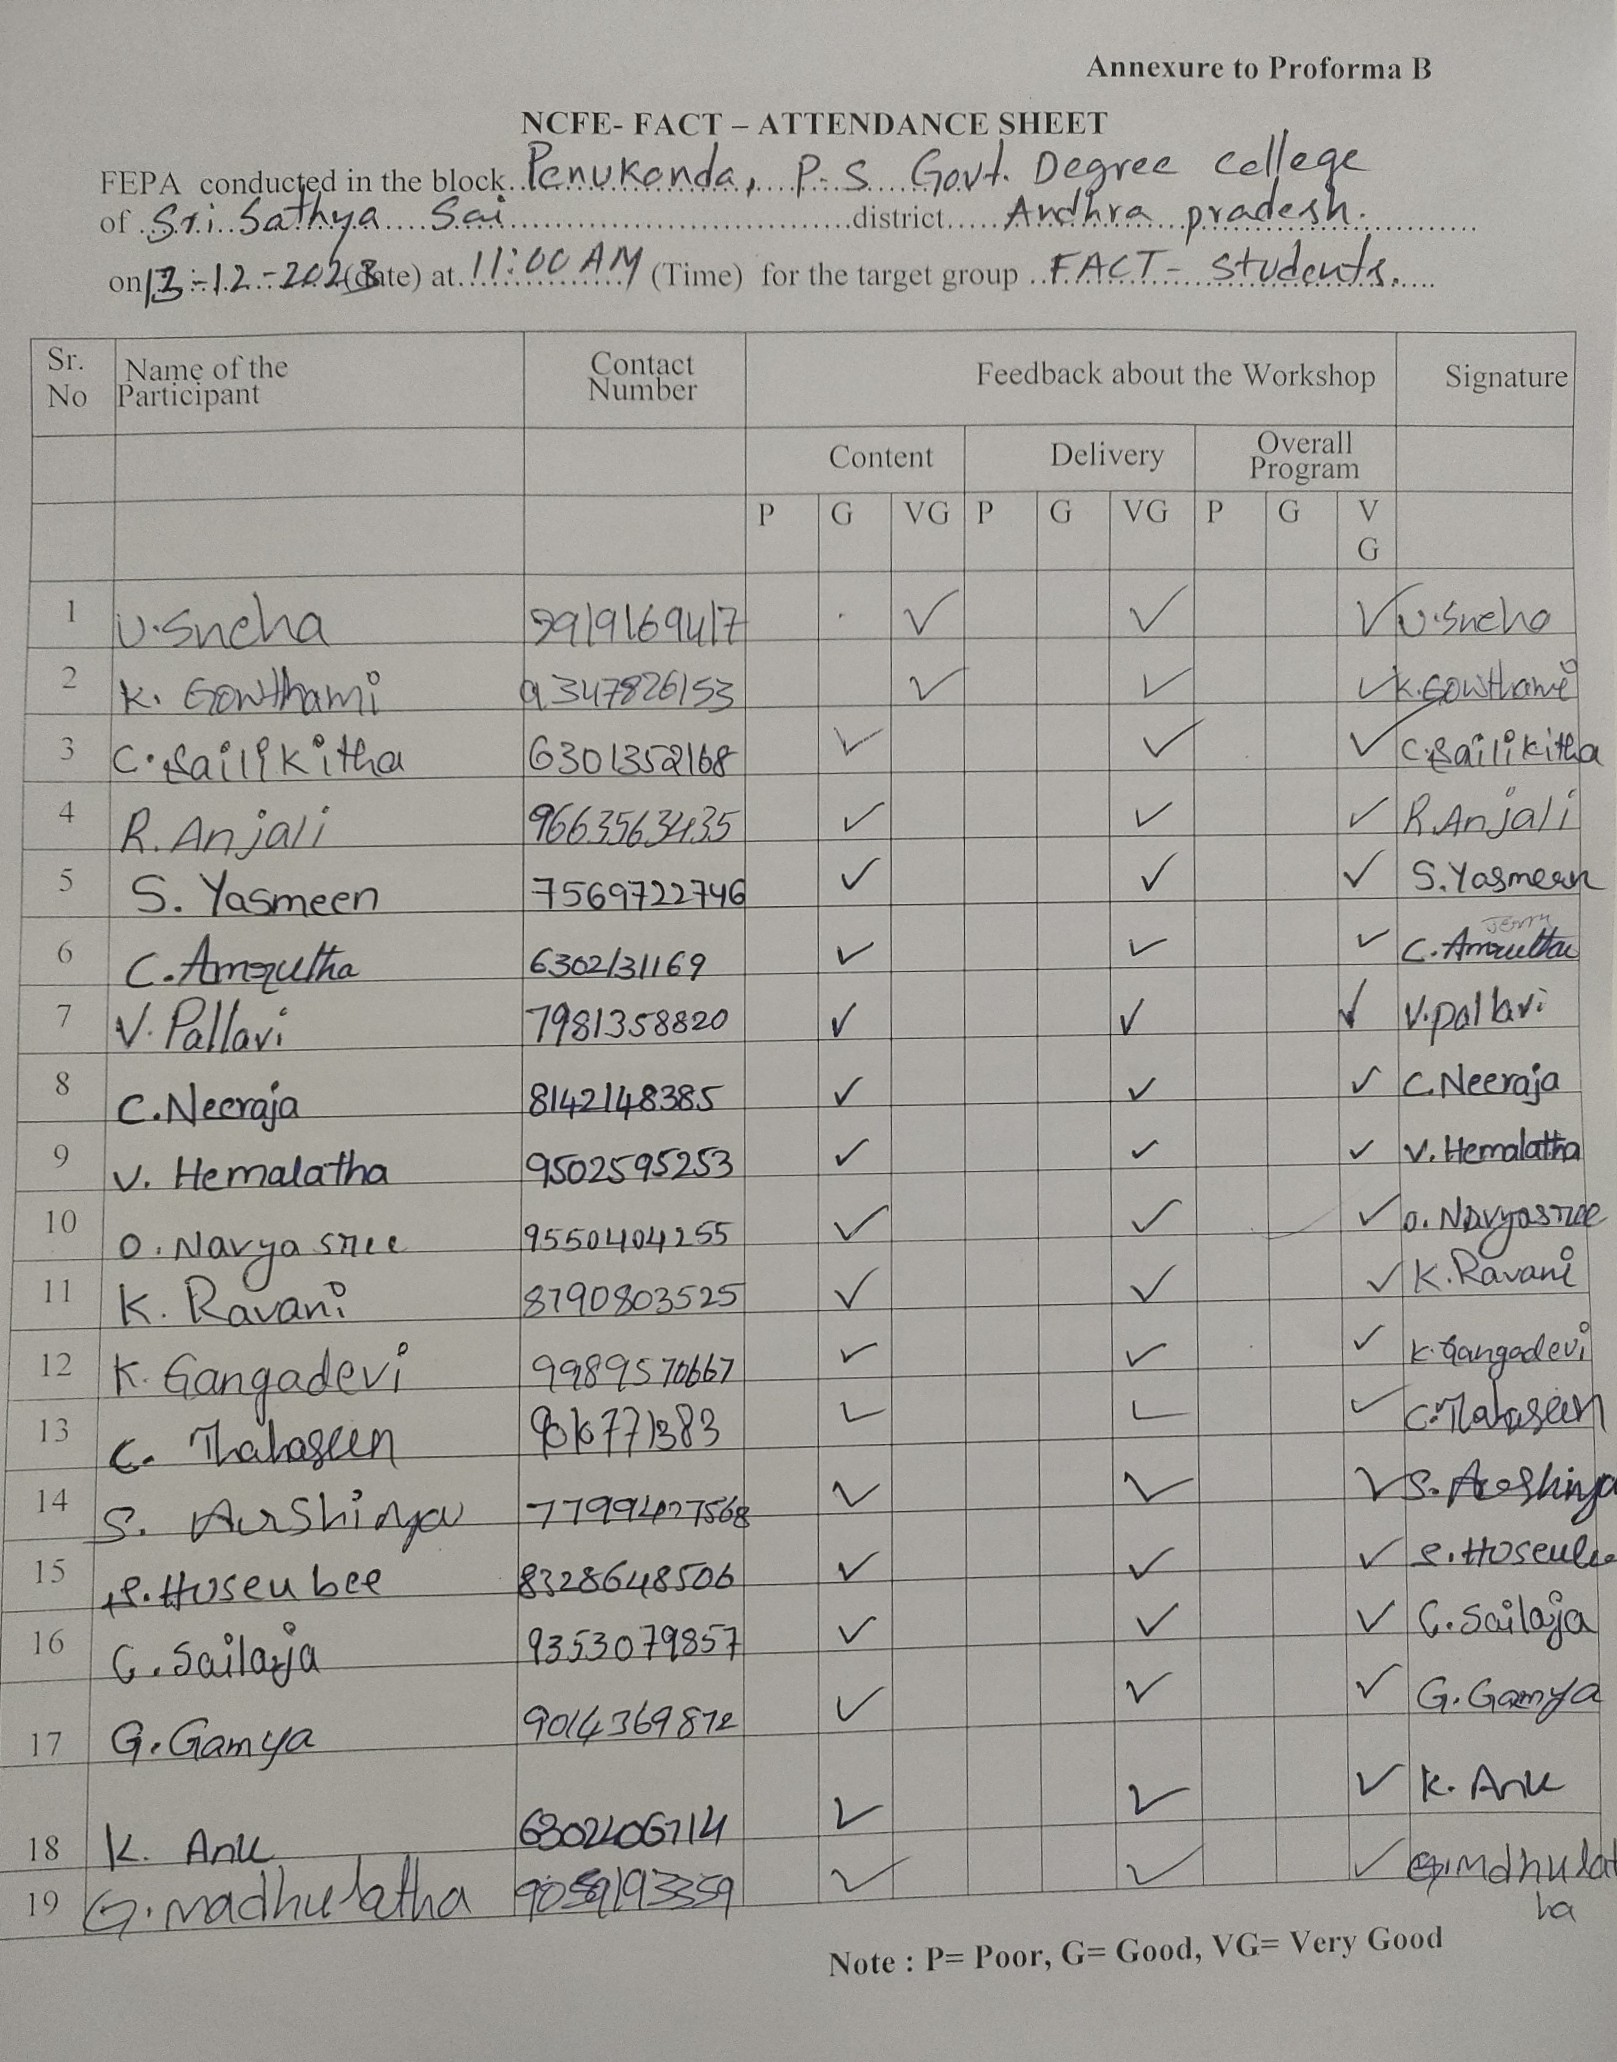 Annexure to Proforma B
NCFE- FACT – ATTENDANCE SHEET
FEPA conducted in the block Penukonda, P.S Govt. Degree college
of Sri Sathya Sai district Andhra pradesh.
on 13-12-2023 (date) at 11:00 AM (Time) for the target group FACT- students.
Sr. No Name of the Participant Contact Number Feedback about the Workshop Signature
Content Delivery Overall Program
P G VG P G VG P G VG
1 U.Sneha ✓ ✓ ✓ U.Sneha
2 K. Gowthami 9347826153 ✓ ✓ ✓ K.Gowthami
3 C.Sailikitha 6301352168 ✓ ✓ ✓ C.Sailikitha
4 R.Anjali 9663563435 ✓ ✓ ✓ R.Anjali
5 S. Yasmeen 7569722746 ✓ ✓ ✓ S.Yasmeen
6 C.Amrutha 6302131169 ✓ ✓ ✓ Jenny C.Amrutha
7 V.Pallavi 7981358820 ✓ ✓ ✓ V.pallavi
8 C.Neeraja 8142148385 ✓ ✓ ✓ C.Neeraja
9 V. Hemalatha 9502595253 ✓ ✓ ✓ V.Hemalatha
10 O.Navya sree 9550404255 ✓ ✓ ✓ O.Navyasree
11 K. Ravani 8790803525 ✓ ✓ ✓ K.Ravani
12 K. Gangadevi 9989570667 ✓ ✓ ✓ K.Gangadevi
13 C. Thahaseen ✓ ✓ ✓ C.Thahaseen
14 S. Arshiya ✓ ✓ ✓ S. Arshiya
15 Hoseubee 8328648506 ✓ ✓ ✓
16 G.Sailaja 9353079857 ✓ ✓ ✓ G.Sailaja
17 G.Gamya 9014369872 ✓ ✓ ✓ G.Gamya
18 K. Anu ✓ ✓ ✓ K. Anu
19 G.madhulatha 9059193359 ✓ ✓ ✓ G.mdhulatha
Note : P= Poor, G= Good, VG= Very Good